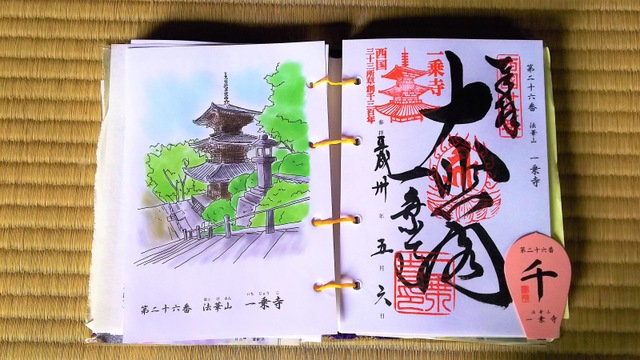 第二十六番 法華山 一乗寺
第二十六番 法華山 一乗寺
奉拝
大悲閣
一乗寺
一乗寺
西国
三十三所草創千三百年
平成卅年五月六日
第二十六番
千
法華山
一乗寺